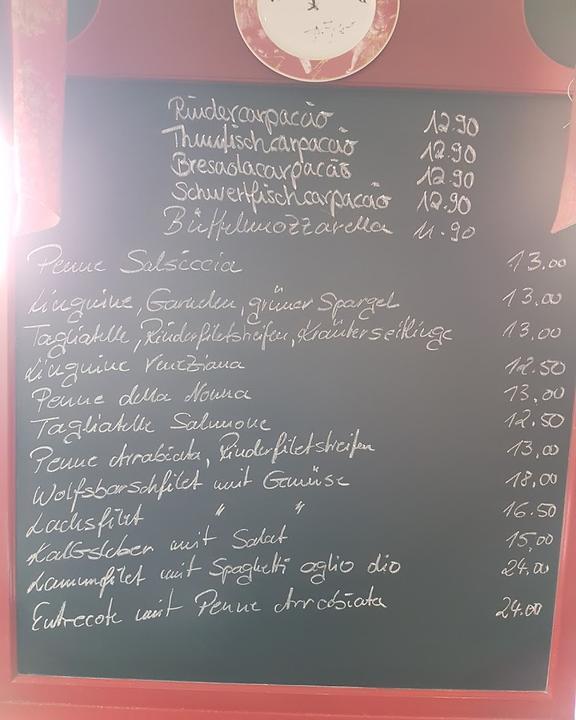 Rindercarpacio 12.90
Thunfischcarpacio 12.90
Bresaolacarpacio 12.90
Schwertfischcarpacio 12.90
Büffelmozzarella 11.90
Penne Salsiccia 13.00
Linguine, Garnelen, grüner Spargel 13.00
Tagliatelle, Rinderfiletstreifen, Kräuterseitlinge 13.00
Linguine Veneziana 12.50
Penne della Nonna 13,00
Tagliatelle Salmone 12,50
Penne Arrabiata, Rinderfiletstreifen 13,00
Wolfsbarschfilet mit Gemüse 18,00
Lachsfilet " " 16.50
Kalbsleber mit Salat 15,00
Lammfilet mit Spaghetti aglio olio 24,00
Entrecote mit Penne Arrabiata 24.00